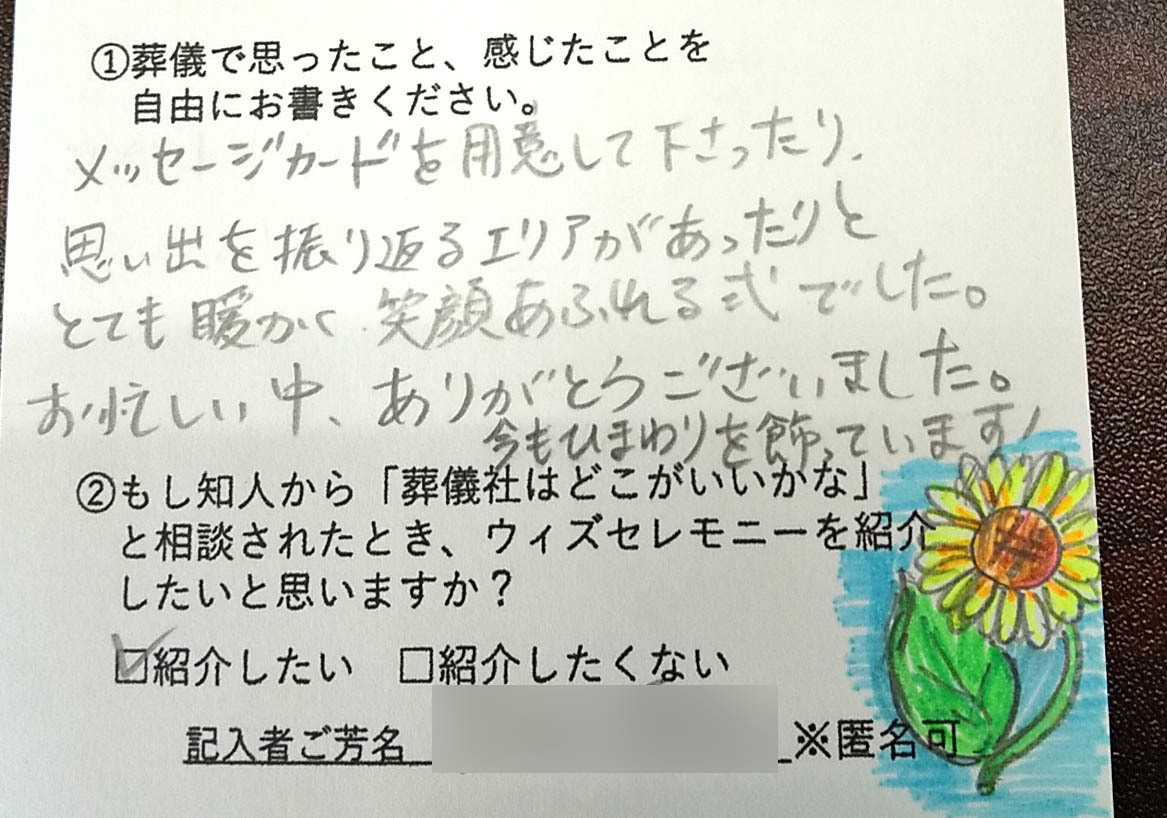 ①葬儀で思ったこと、感じたことを
自由にお書きください。
メッセージカードを用意して下さったり、
思い出を振り返るエリアがあったりと
とても暖かく笑顔あふれる式でした。
お忙しい中、ありがとうございました。
今もひまわりを飾っています!
②もし知人から「葬儀社はどこがいいかな」
と相談されたとき、ウィズセレモニーを紹介
したいと思いますか？
☑紹介したい □紹介したくない
記入者ご芳名 ※匿名可